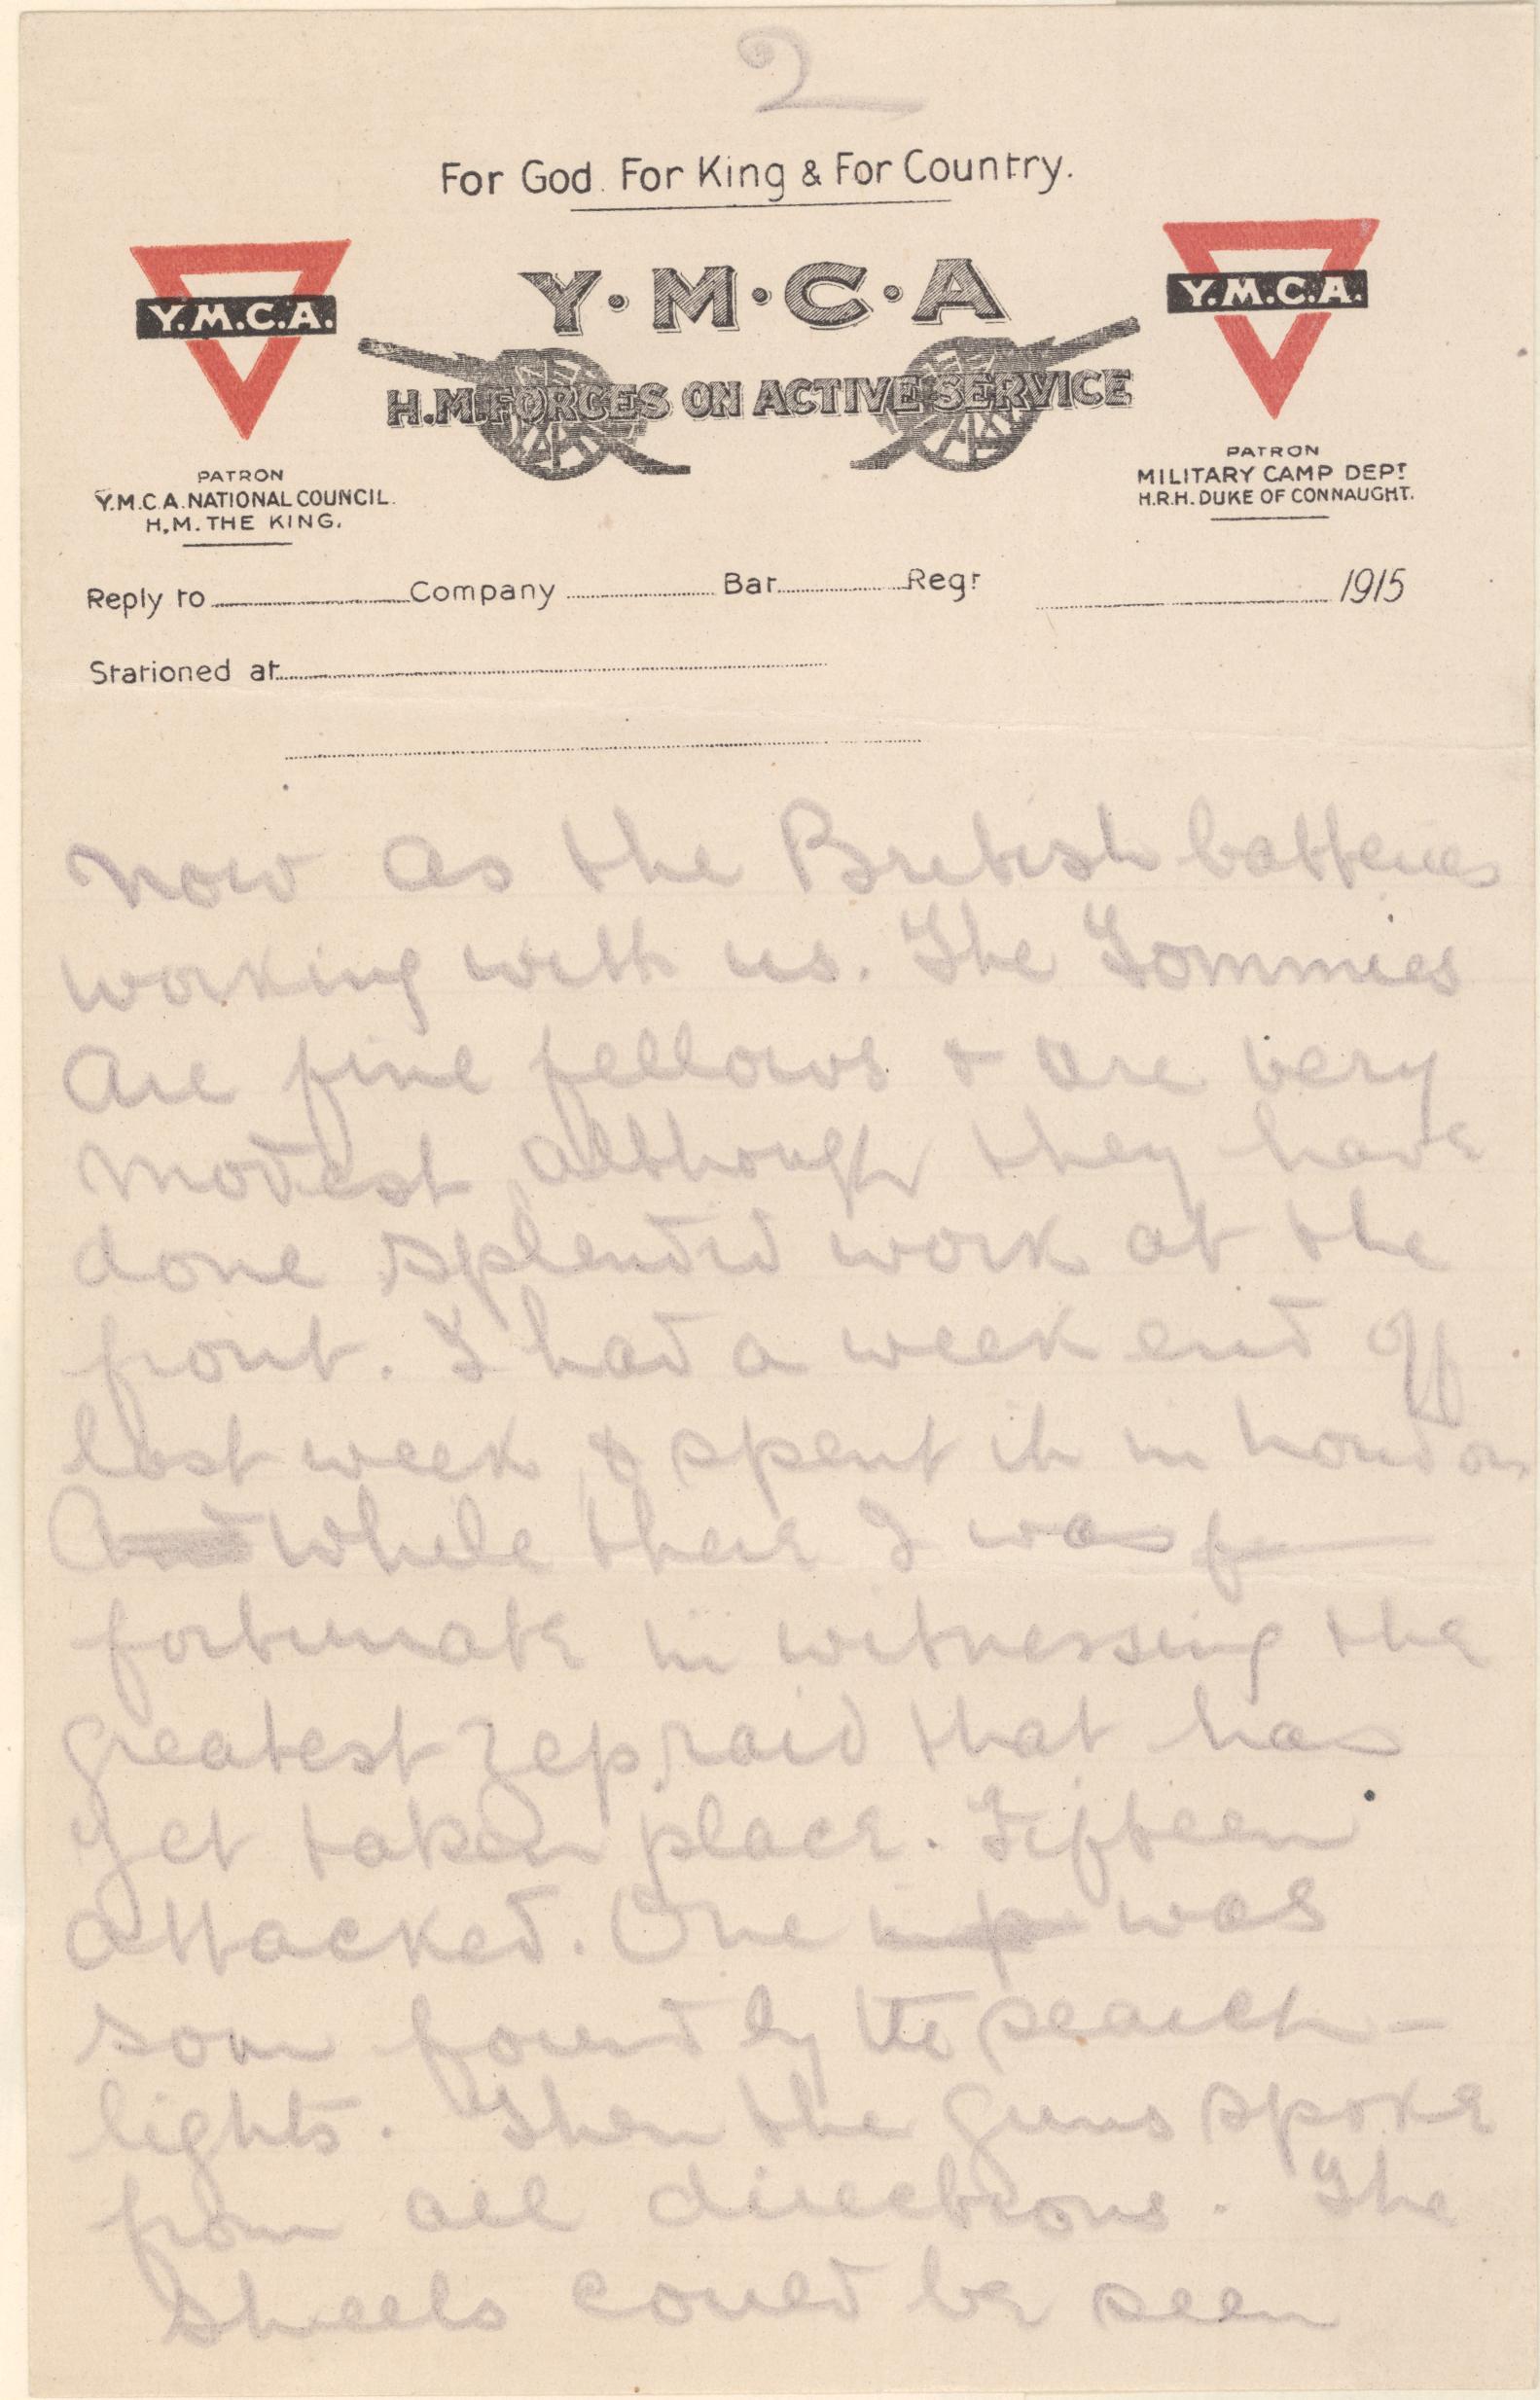 2
For God. For King & For Country.
Y.M.C.A.
Y·M·C·A
Y.M.C.A.
H.M. FORCES ON ACTIVE SERVICE
PATRON
Y.M.C.A. NATIONAL COUNCIL.
H.M. THE KING.
PATRON
MILITARY CAMP DEPT
H.R.H. DUKE OF CONNAUGHT.
Reply to Company Bat Regt 1915
Stationed at
now as the British batteries
working with us. The Tommies
are fine fellows & are very
modest although they have
done splendid work at the
front. I had a week end off
last week & spent it in London
And while there I was f
fortunate in witnessing the
greatest zep raid that has
yet taken place. Fifteen
attacked. One was
soon found by the search-
lights. Then the guns spoke
from all directions. The
shells could be seen